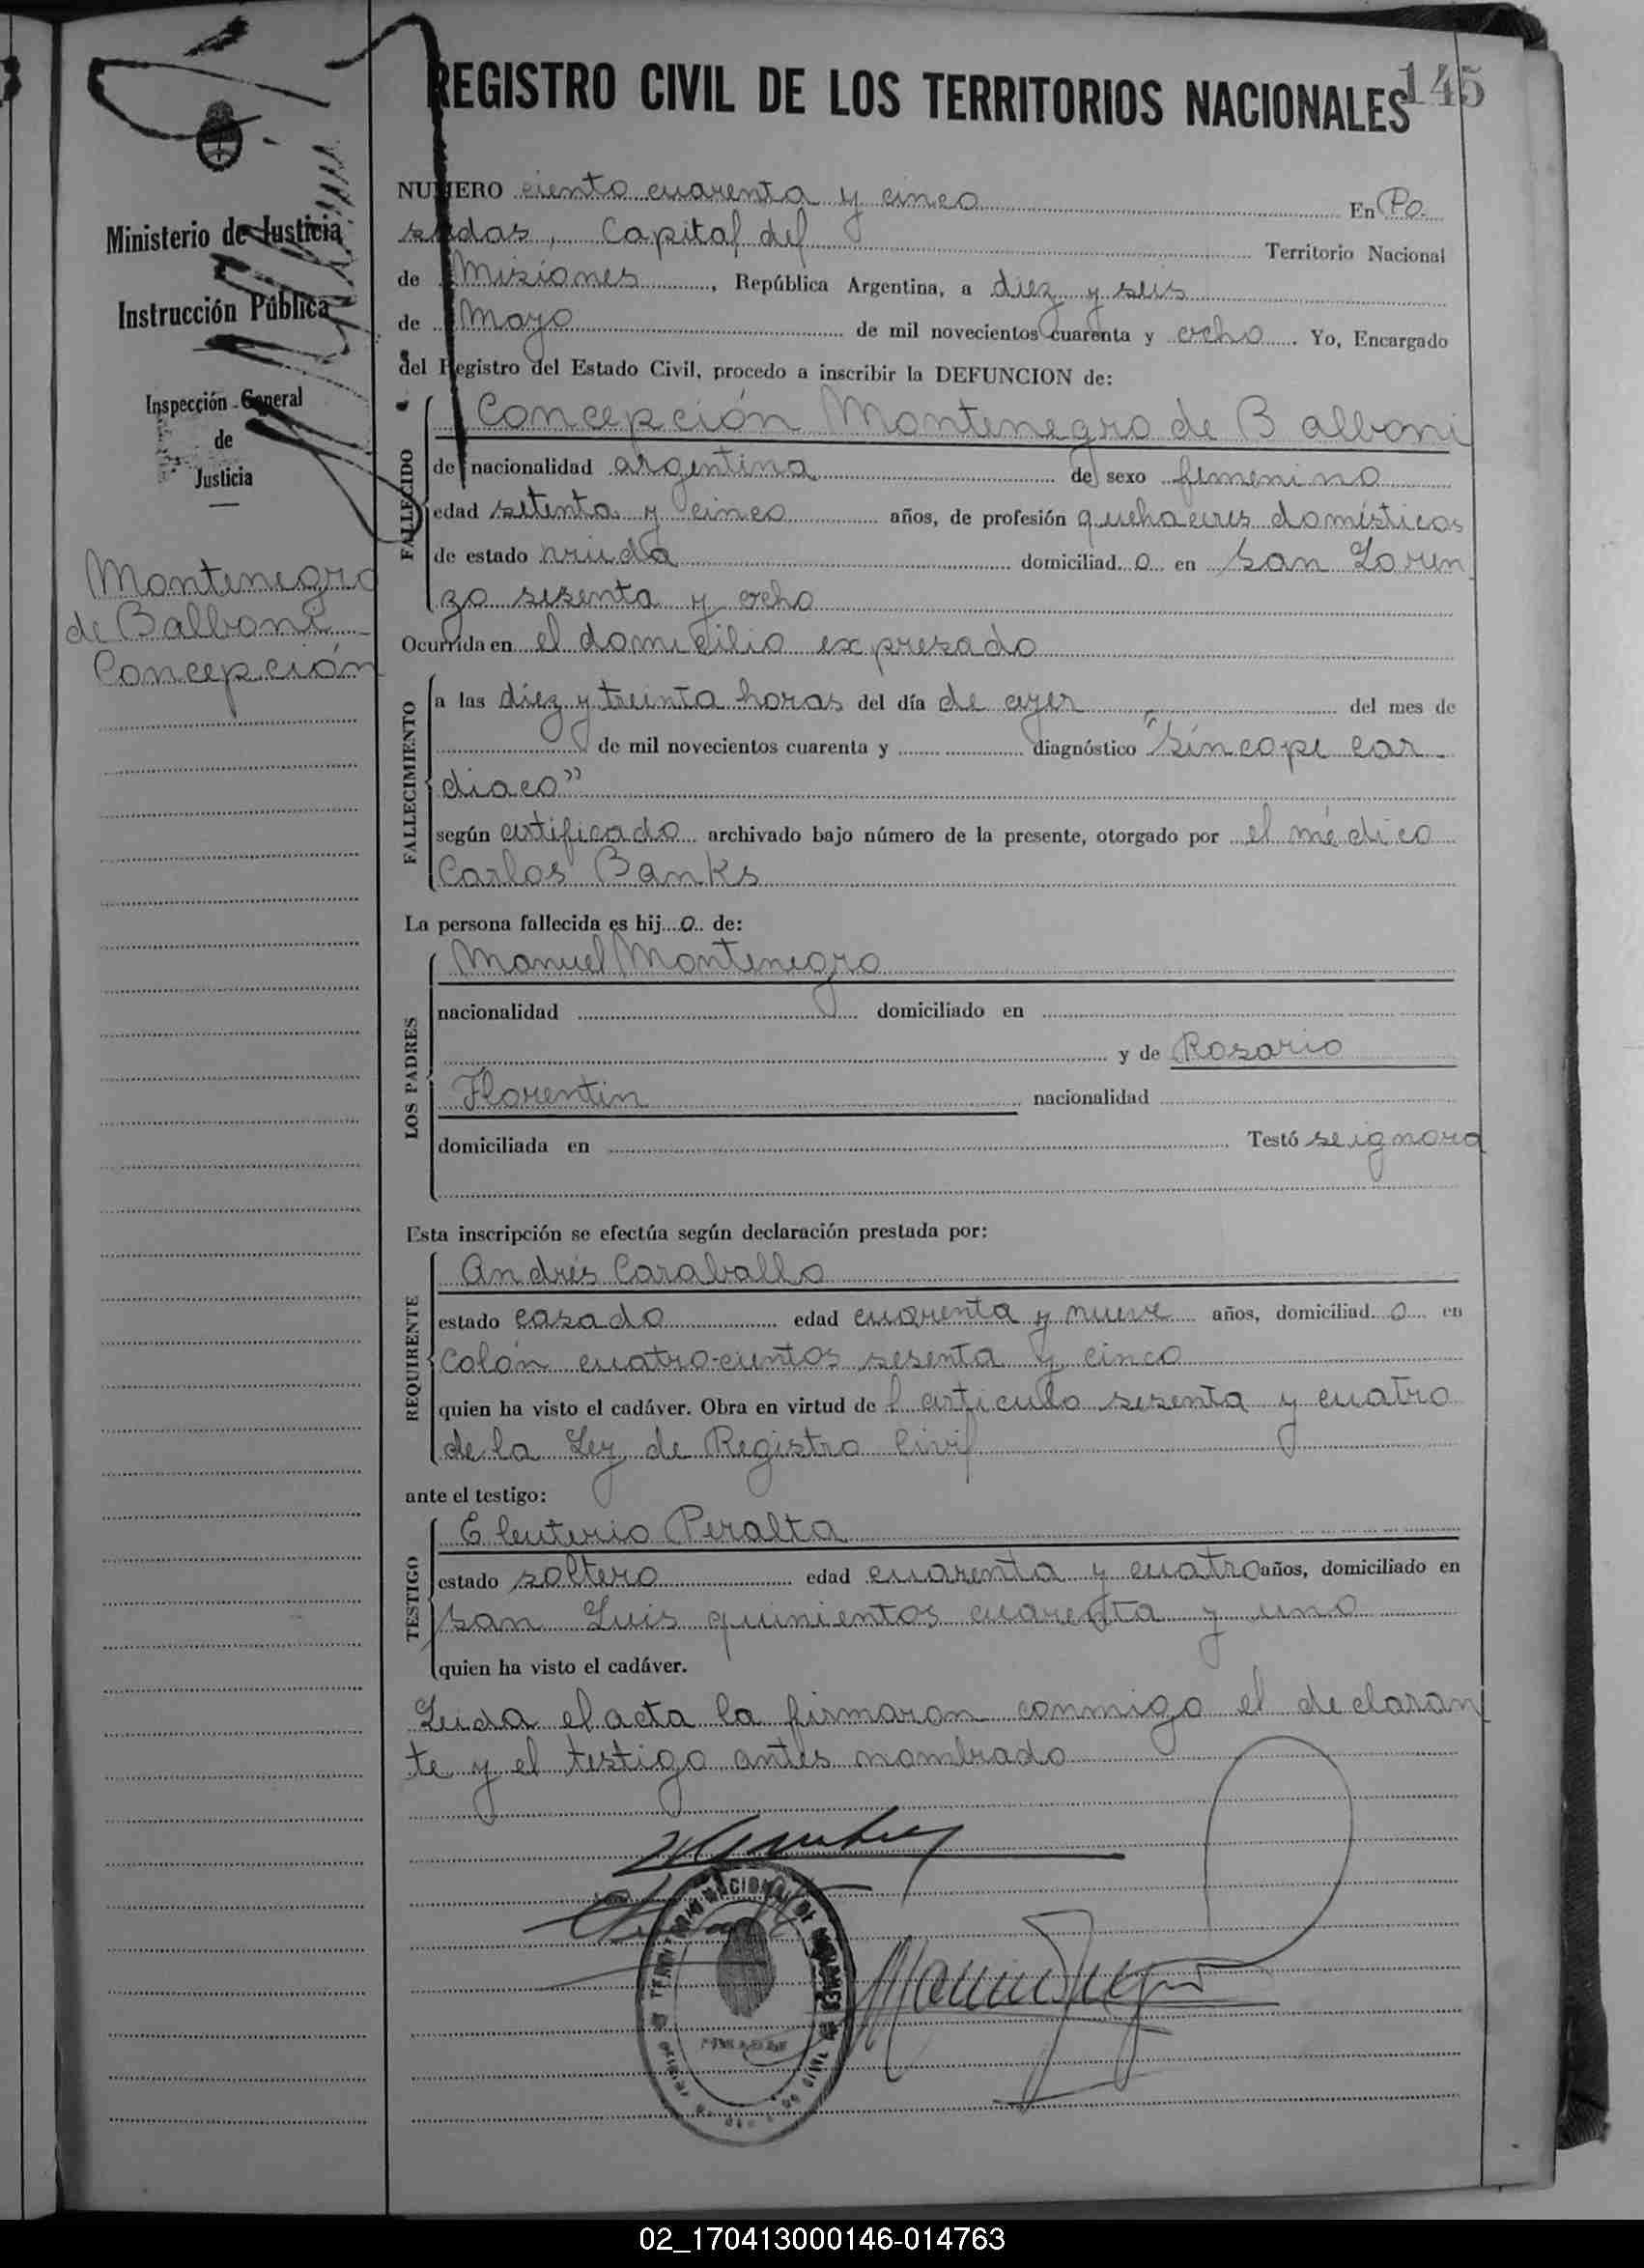 REGISTRO CIVIL DE LOS TERRITORIOS NACIONALES
145
Ministerio de Justicia
Instrucción Pública
Inspección General
de
Justicia
Montenegro
de Balboni
Concepción
NUMERO ciento cuarenta y cinco En Po
sadas, Capital del Territorio Nacional
de Misiones, República Argentina, a diez y seis
de Mayo de mil novecientos cuarenta y ocho. Yo, Encargado
del Registro del Estado Civil, procedo a inscribir la DEFUNCION de:
FALLECIDO
Concepción Montenegro de Balboni
de nacionalidad argentina de sexo femenino
edad setenta y cinco años, de profesión quehaceres domésticos
de estado viuda domiciliad a en San Loren
zo sesenta y ocho
Ocurrida en el domicilio expresado
FALLECIMIENTO
a las diez y treinta horas del día de ayer del mes de
de mil novecientos cuarenta y diagnóstico "síncope car
diaco"
según certificado archivado bajo número de la presente, otorgado por el médico
Carlos Banks
La persona fallecida es hij a de:
LOS PADRES
Manuel Montenegro
nacionalidad domiciliado en
y de Rosario
Florentin nacionalidad
domiciliada en Testó se ignora
Esta inscripción se efectúa según declaración prestada por:
REQUIRENTE
Andrés Caraballo
estado casado edad cuarenta y nueve años, domiciliad o en
Colón cuatro-cientos sesenta y cinco
quien ha visto el cadáver. Obra en virtud de l articulo sesenta y cuatro
de la Ley de Registro Civil
ante el testigo:
TESTIGO
Eleuterio Peralta
estado soltero edad cuarenta y cuatro años, domiciliado en
San Luis quinientos cuarenta y uno
quien ha visto el cadáver.
Leida el acta la firmaron conmigo el declaran
te y el testigo antes nombrado
02_170413000146-014763